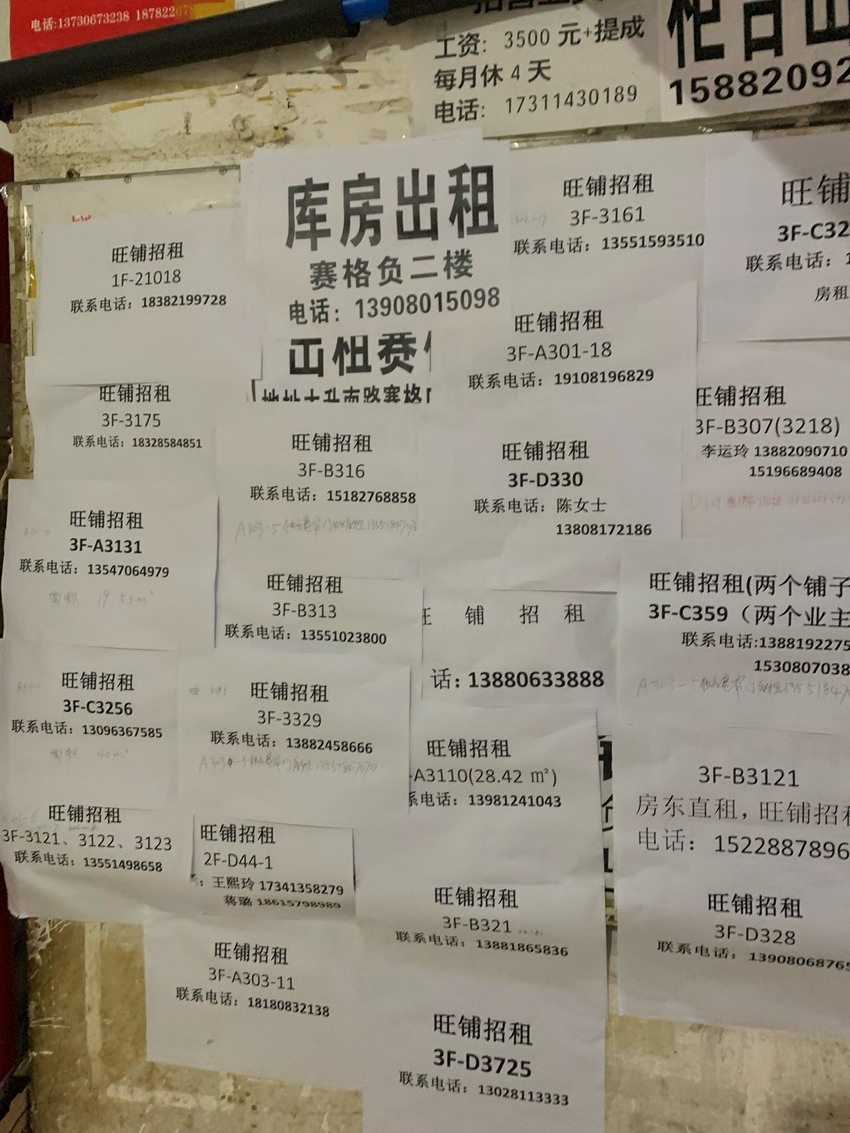 电话:13730673238
工资: 3500 元+提成
每月休 4 天
电话: 17311430189
库房出租
赛格负二楼
电话: 13908015098
旺铺招租
3F-3161
联系电话: 13551593510
旺铺
3F-C32
联系电话:
房租
旺铺招租
1F-21018
联系电话: 18382199728
旺铺招租
3F-A301-18
联系电话: 19108196829
旺铺招租
3F-3175
联系电话: 18328584851
旺铺招租
3F-B316
联系电话: 15182768858
旺铺招租
3F-D330
联系电话: 陈女士
13808172186
旺铺招租
3F-B307(3218)
李运玲 13882090710
15196689408
旺铺招租
3F-A3131
联系电话: 13547064979
旺铺招租
3F-B313
联系电话: 13551023800
铺 招 租
话: 13880633888
旺铺招租(两个铺子
3F-C359（两个业主
联系电话:1388192275
1530807038
旺铺招租
3F-C3256
联系电话: 13096367585
旺铺招租
3F-3329
联系电话: 13882458666
旺铺招租
-A3110(28.42 ㎡)
系电话: 13981241043
3F-B3121
房东直租, 旺铺招租
电话: 1522887896
旺铺招租
3F-3121、3122、3123
联系电话: 13551498658
旺铺招租
2F-D44-1
: 王熙玲 17341358279
蒋璐 18615798989
旺铺招租
3F-B321
联系电话: 13881865836
旺铺招租
3F-D328
联系电话: 1390806876
旺铺招租
3F-A303-11
联系电话: 18180832138
旺铺招租
3F-D3725
联系电话: 13028113333